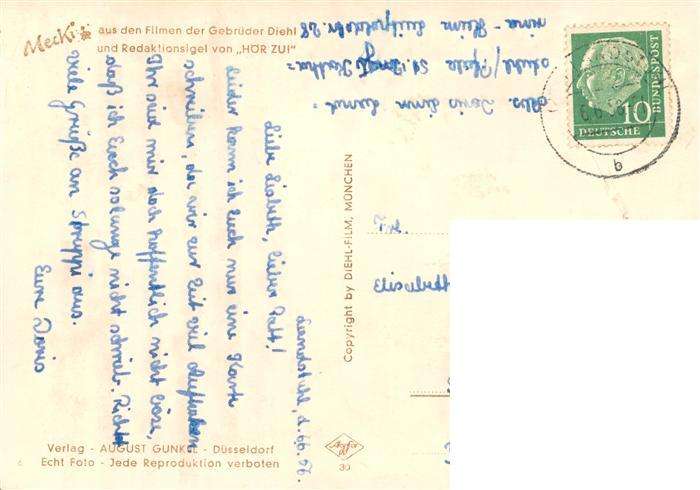 Mecki
aus den Filmen der Gebrüder Diehl
und Redaktionsigel von „HÖR ZU!"
Landstuhl, d. 6.6.56.
Liebe Lisbeth, lieber Patt!
Leider kann ich Euch nur eine Karte
schreiben, da wir zur Zeit viel Aufgaben
Ihr seid mir doch hoffentlich nicht böse,
daß ich Euch solange nicht schrieb. Richtet
viele Grüße an Struppi aus.
Eure Doris
Verlag - AUGUST GUNKEL - Düsseldorf
Echt Foto - Jede Reproduktion verboten
Copyright by DIEHL-FILM, MÜNCHEN
Agfa
30
Abs. Doris
stuhl/Pfalz St. Katha=
rina - Heim Luitpoldstr. 28
10
DEUTSCHE
BUNDESPOST
b
Frl.
Elisabeth